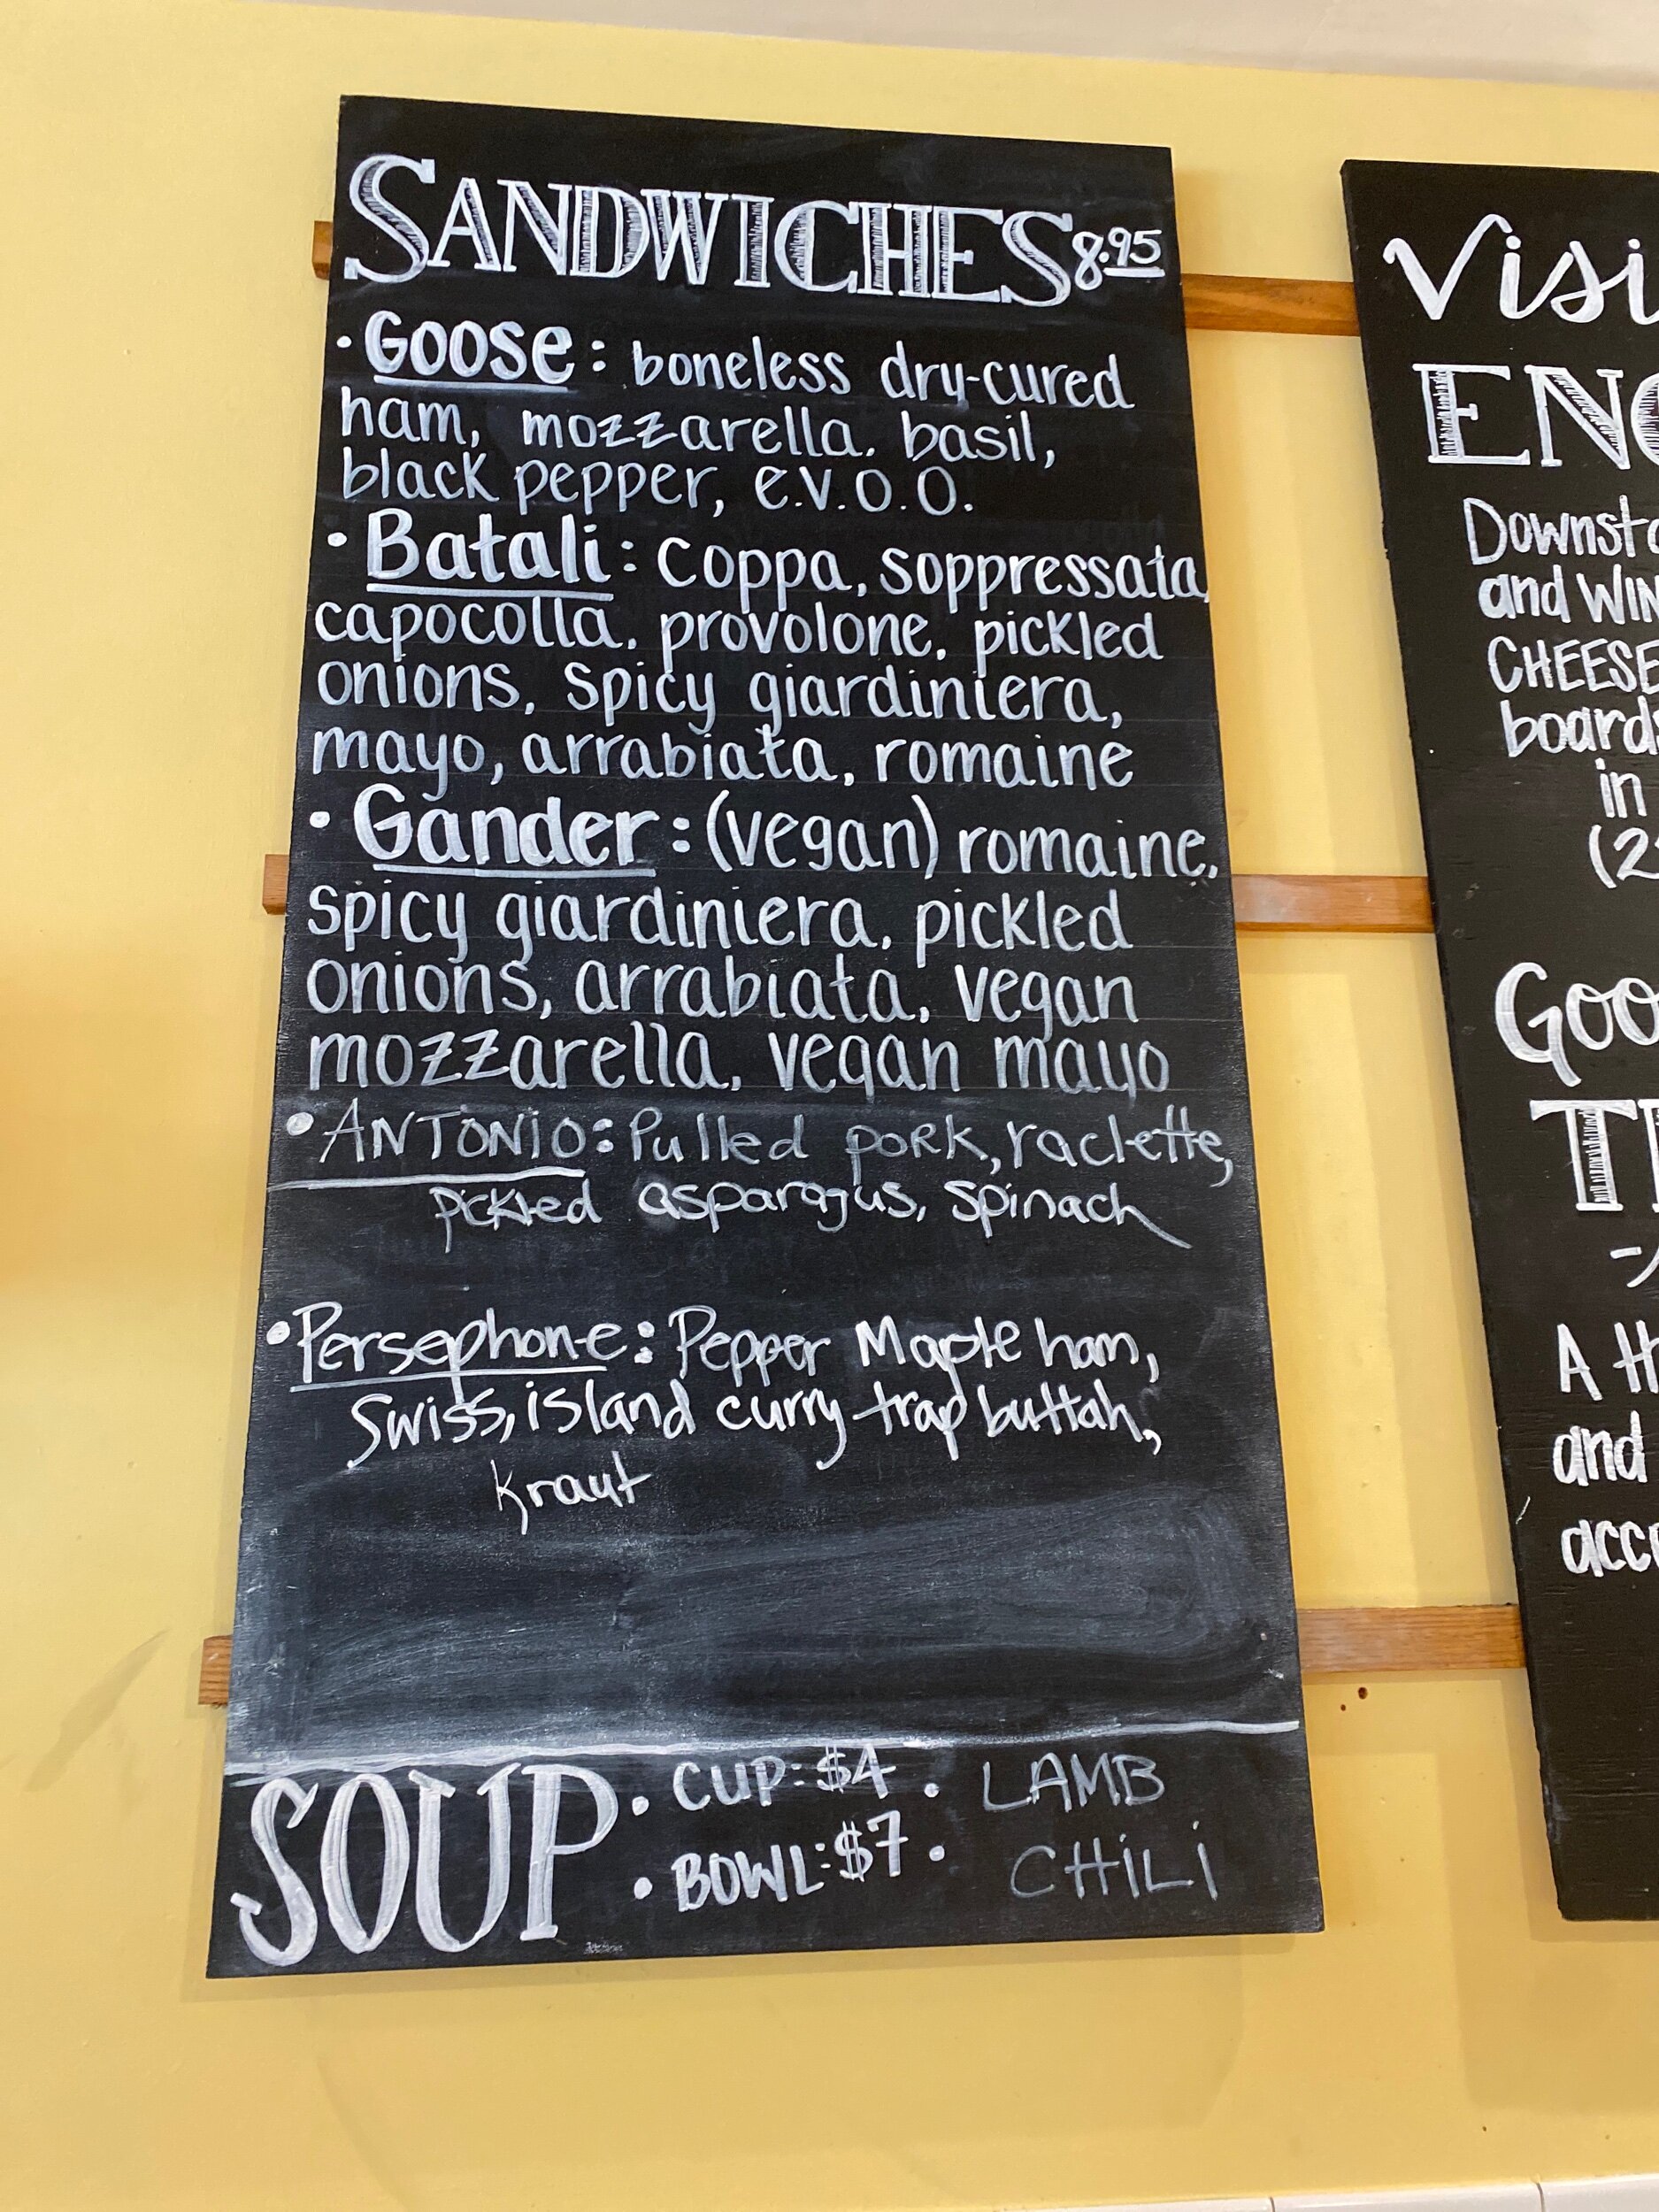 SANDWICHES 8.95
• Goose: boneless dry-cured
ham, mozzarella, basil,
black pepper, e.v.o.o.
• Batali: coppa, soppressata,
capocolla, provolone, pickled
onions, spicy giardiniera,
mayo, arrabiata, romaine
• Gander: (vegan) romaine,
spicy giardiniera, pickled
onions, arrabiata, vegan
mozzarella, vegan mayo
• ANTONIO: Pulled pork, raclette,
pickled asparagus, spinach
• Persephone: Pepper Maple ham,
Swiss, island curry trap buttah,
Kraut
SOUP • CUP: $4 • LAMB
• BOWL: $7 • CHiLi
Visi
ENO
Downsta
and WIN
CHEESE
boards
in
(2
Goo
A th
and
acco